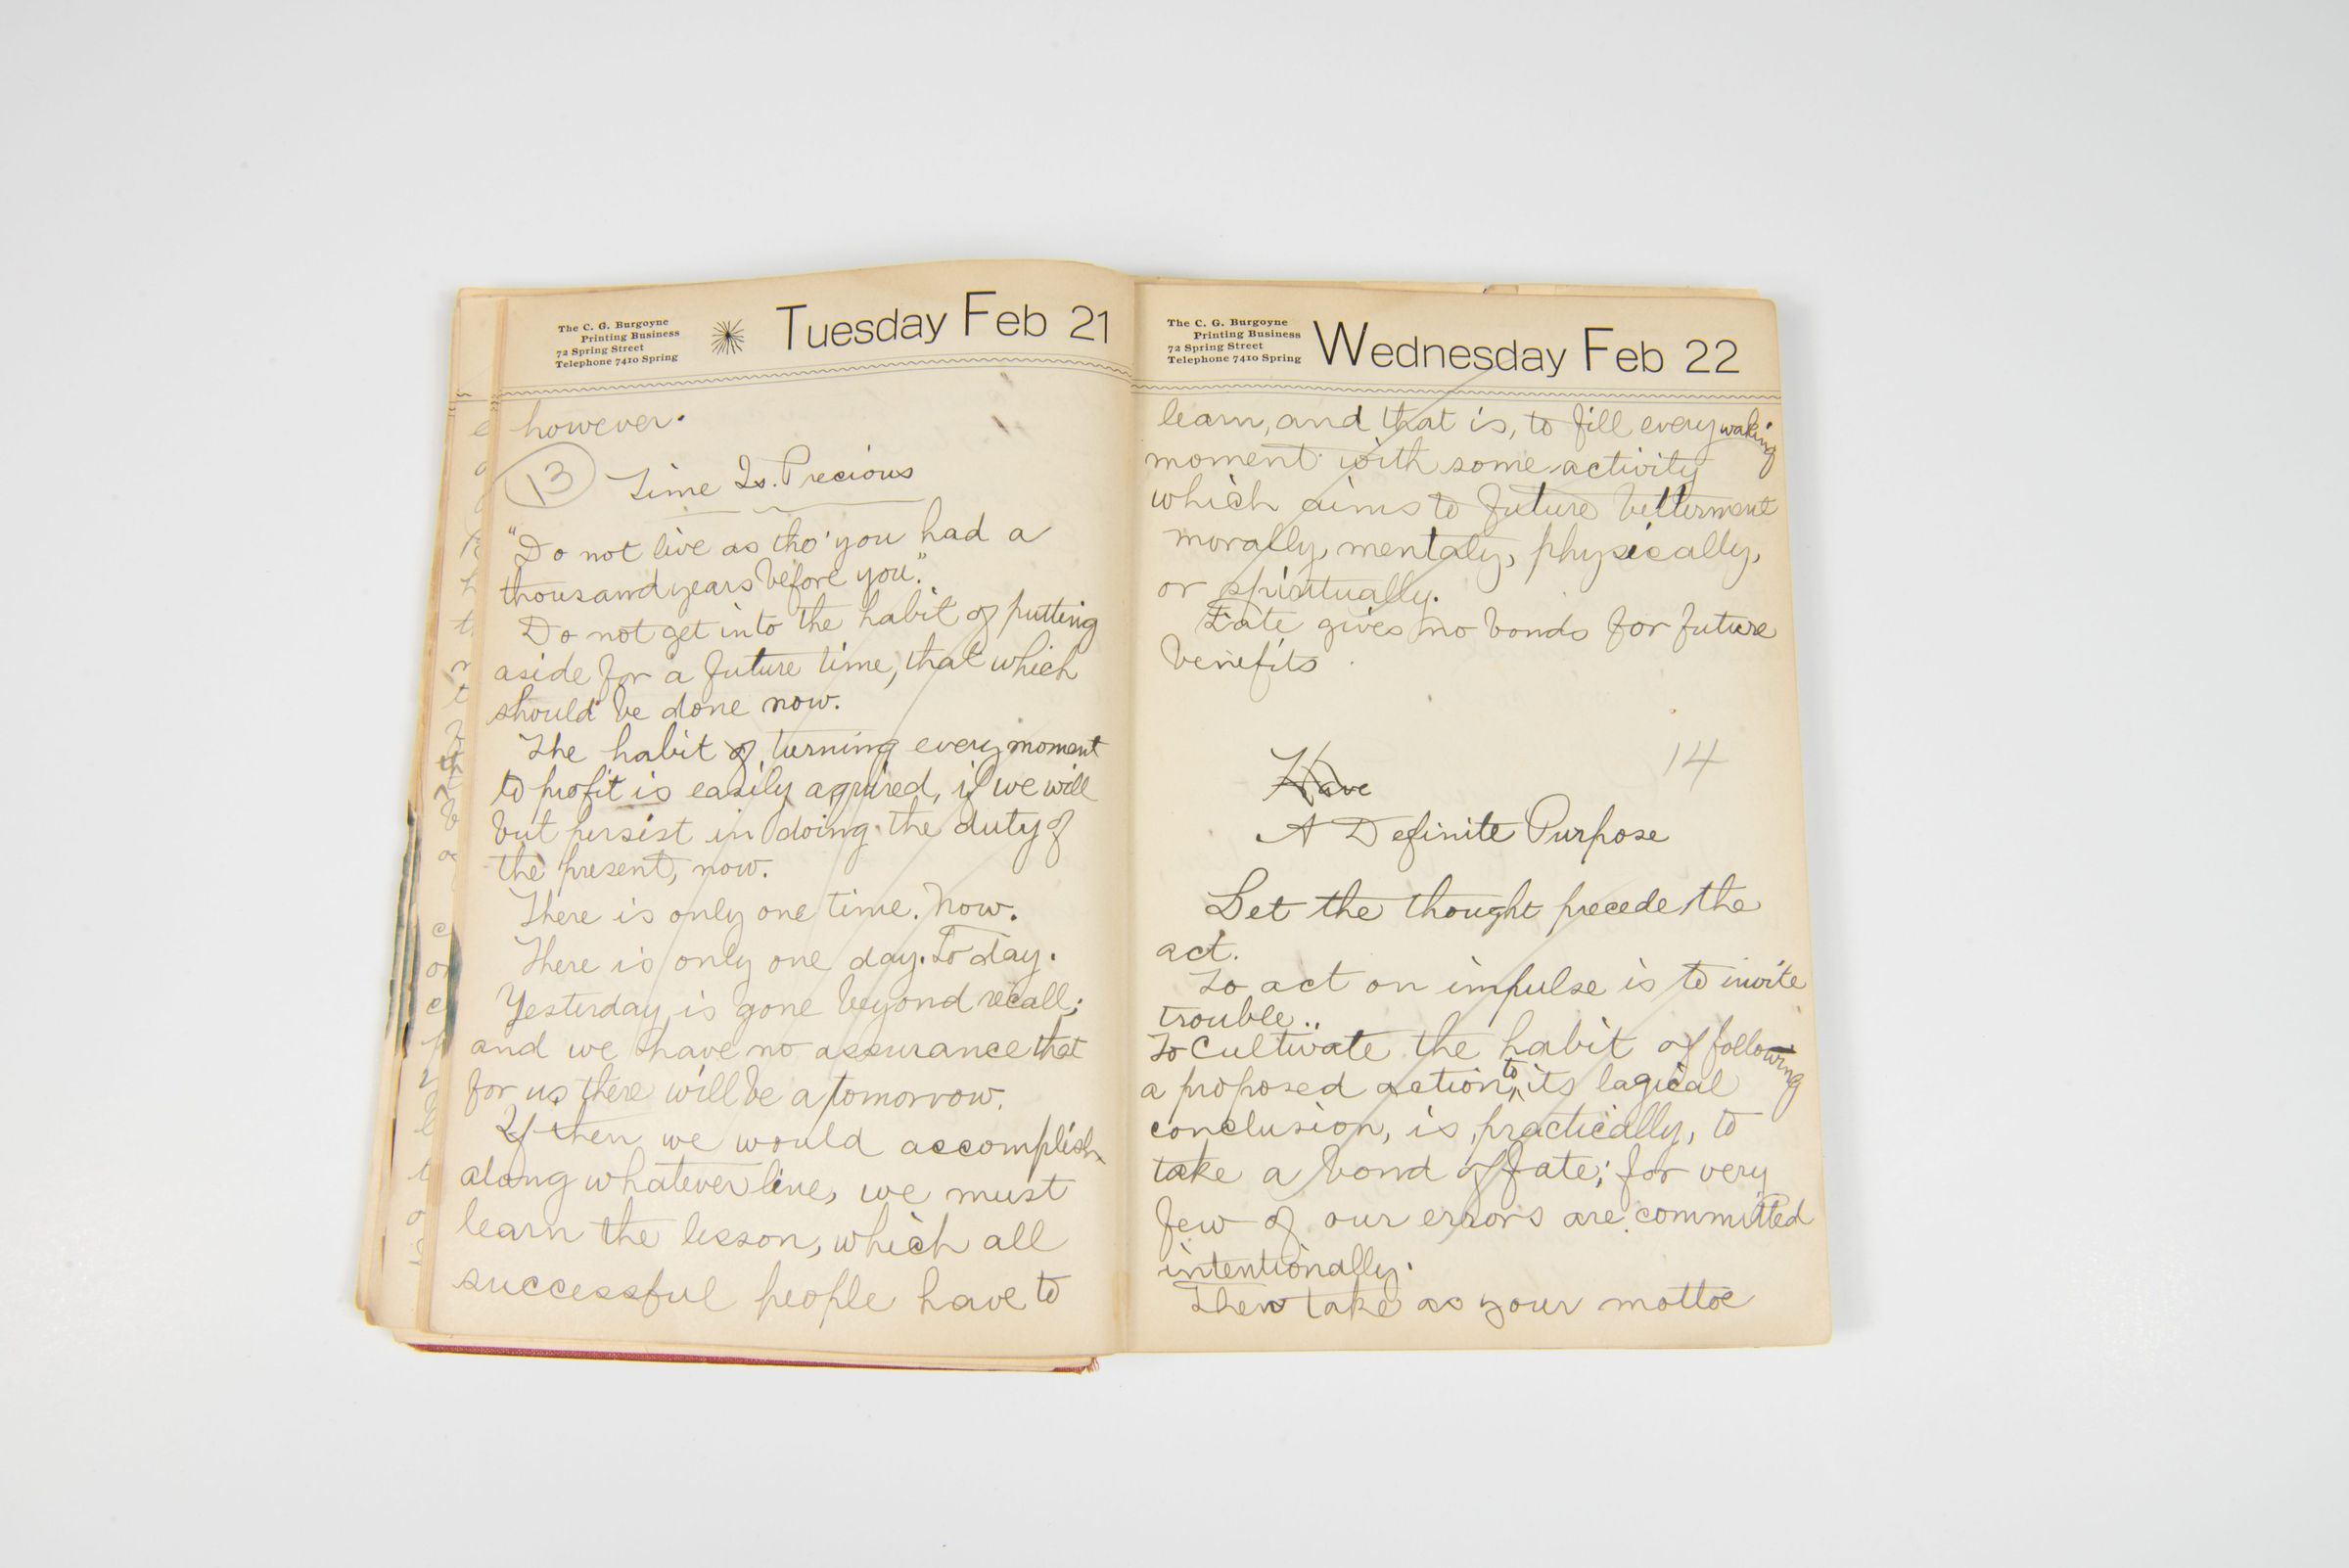 The C. G. Burgoyne
Printing Business
72 Spring Street
Telephone 7410 Spring
Tuesday Feb 21
however.
13 Time Is Precious
"Do not live as tho' you had a
thousand years before you."
Do not get into the habit of putting
aside for a future time, that which
should be done now.
The habit of turning every moment
to profit is easily aqquired, if we will
but persist in doing the duty of
the present, now.
There is only one time. Now.
There is only one day. To day.
Yesterday is gone beyond recall;
and we have no assurance that
for us there will be a tomorrow.
If then we would accomplish
along whatever line, we must
learn the lesson, which all
successful people have to
The C. G. Burgoyne
Printing Business
72 Spring Street
Telephone 7410 Spring
Wednesday Feb 22
learn, and that is, to fill every waking
moment with some activity
which aims to future betterment
morally, mentaly, physically,
or spiritually.
Fate gives no bonds for future
benefits.
14
Have
A Definite Purpose
Let the thought precede the
act.
To act on impulse is to invite
trouble..
To Cultivate the habit of following
a proposed action, to its logical
conclusion, is, practically, to
take a bond of fate; for very
few of our errors are committed
intentionally.
Then take as your mottoe